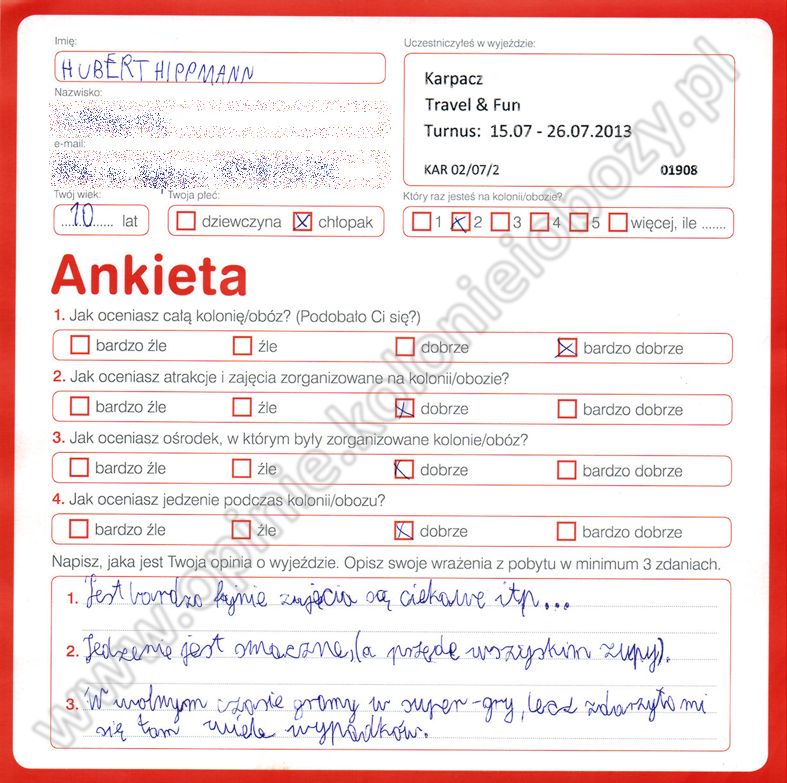 Imię:
HUBERT HIPPMANN
Nazwisko:
e-mail:
Twój wiek:
10 lat
Twoja płeć:
dziewczyna chłopak
Uczestniczyłeś w wyjeździe:
Karpacz
Travel & Fun
Turnus: 15.07 - 26.07.2013
KAR 02/07/2 01908
Który raz jesteś na kolonii/obozie?
1 2 3 4 5 więcej, ile .......
Ankieta
1. Jak oceniasz całą kolonię/obóz? (Podobało Ci się?)
bardzo źle źle dobrze bardzo dobrze
2. Jak oceniasz atrakcje i zajęcia zorganizowane na kolonii/obozie?
bardzo źle źle dobrze bardzo dobrze
3. Jak oceniasz ośrodek, w którym były zorganizowane kolonie/obóz?
bardzo źle źle dobrze bardzo dobrze
4. Jak oceniasz jedzenie podczas kolonii/obozu?
bardzo źle źle dobrze bardzo dobrze
Napisz, jaka jest Twoja opinia o wyjeździe. Opisz swoje wrażenia z pobytu w minimum 3 zdaniach.
1. Jest bardzo fajnie zajęcia są ciekawe itp...
2. Jedzenie jest smaczne, (a przede wszyskim zupy).
3. W wolnym czasie gramy w super-gry, lecz zdarzyło mi
się tam wiele wypadków.
www.opinie.kolonieiobozy.pl